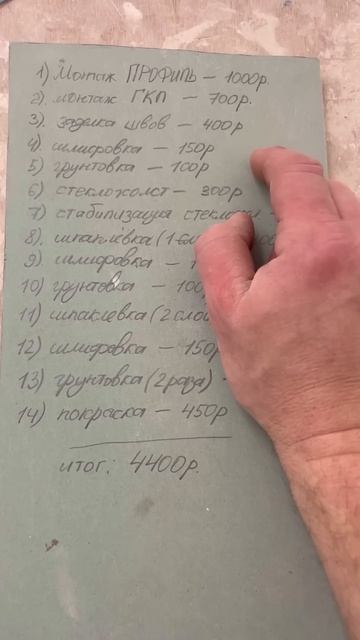 1) Монтаж ПРОФИЛЬ – 1000р.
2) монтаж ГКЛ – 700р.
3). заделка швов – 400р
4) шлифовка – 150р
5) грунтовка – 100р
6) стеклохолст – 300р
7) стабилизация
8). шпаклёвка (1
9) шлифовка – 1
10) грунтовка – 100
11) шпаклёвка (2 слой
12) шлифовка – 150р
13) грунтовка (2 раза) –
14) покраска – 450р
итог: 4400р.